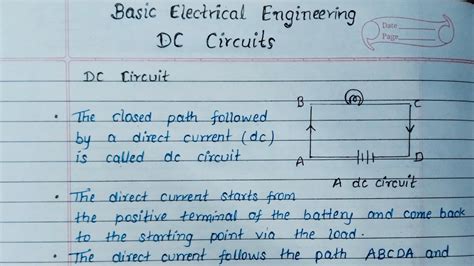 Basic Electrical Engineering
DC Circuits
Date
Page
DC Circuit
• The closed path followed
by a direct current (dc)
is called dc circuit
B
C
A
D
A dc circuit
• The direct current starts from
the positive terminal of the battery and come back
to the starting point via the load.
• The direct current follows the path ABCDA and